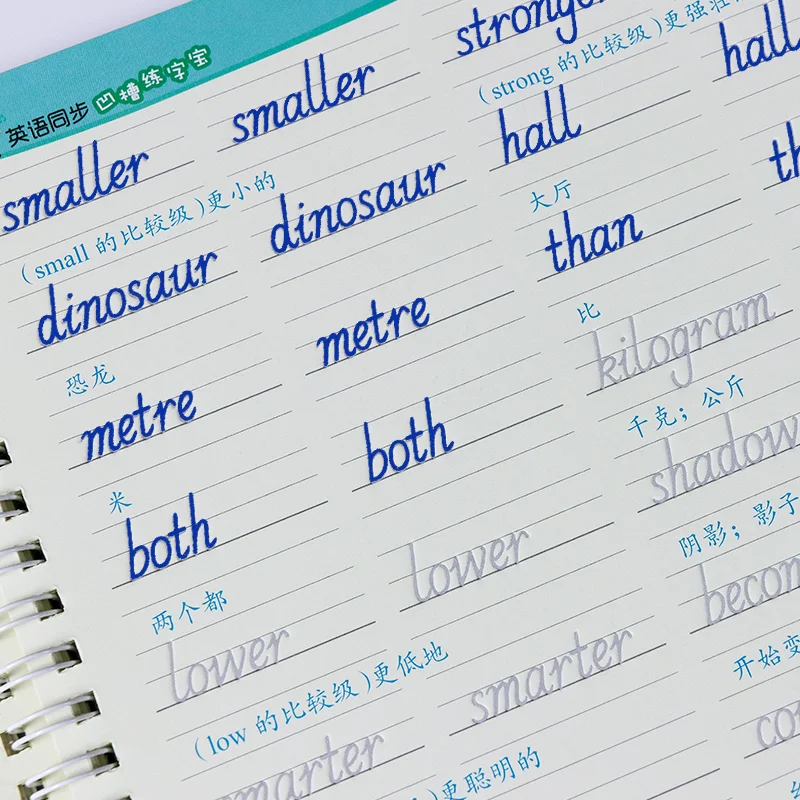 英语同步 凹槽练字宝
smaller smaller
(small 的比较级)更小的
dinosaur dinosaur
恐龙
metre metre
米
both both
两个都
lower lower
(low 的比较级)更低地
smarter smarter
更聪明的
(strong 的比较级)更强壮
hall hall
大厅
than
比
kilogram
千克；公斤
shadow
阴影；影子
开始变